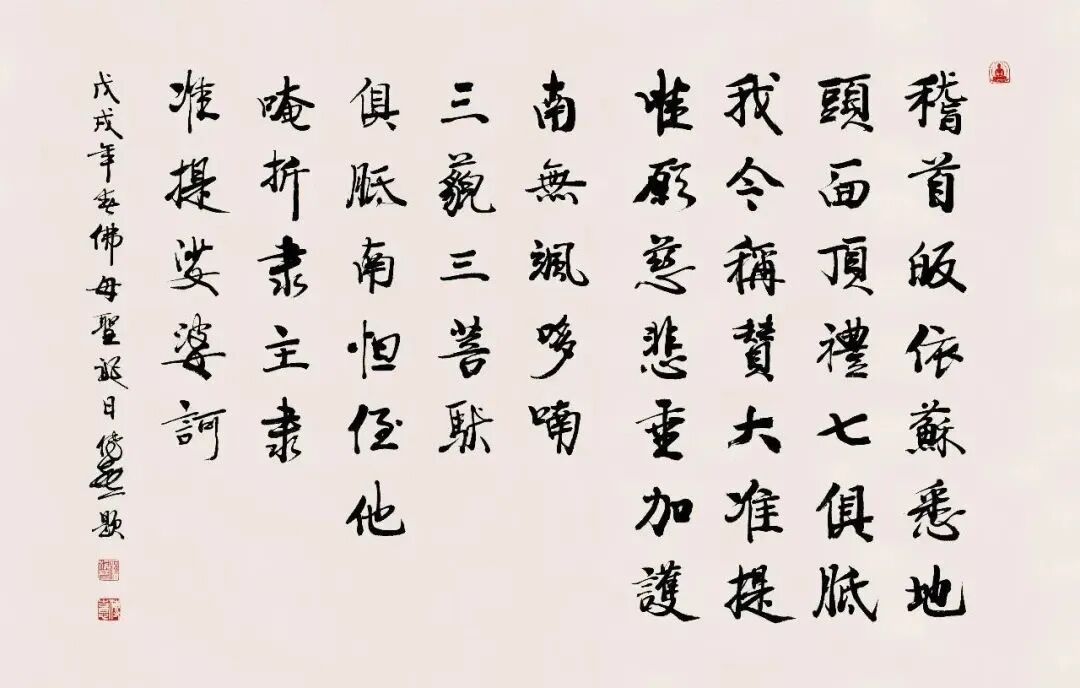 稽首皈依蘇悉地
頭面頂禮七俱胝
我今稱贊大准提
唯願慈悲垂加護
南無颯哆喃
三藐三菩馱
俱胝南怛侄他
唵折隶主隶
准提娑婆訶
戊戌年春佛母聖誕日題